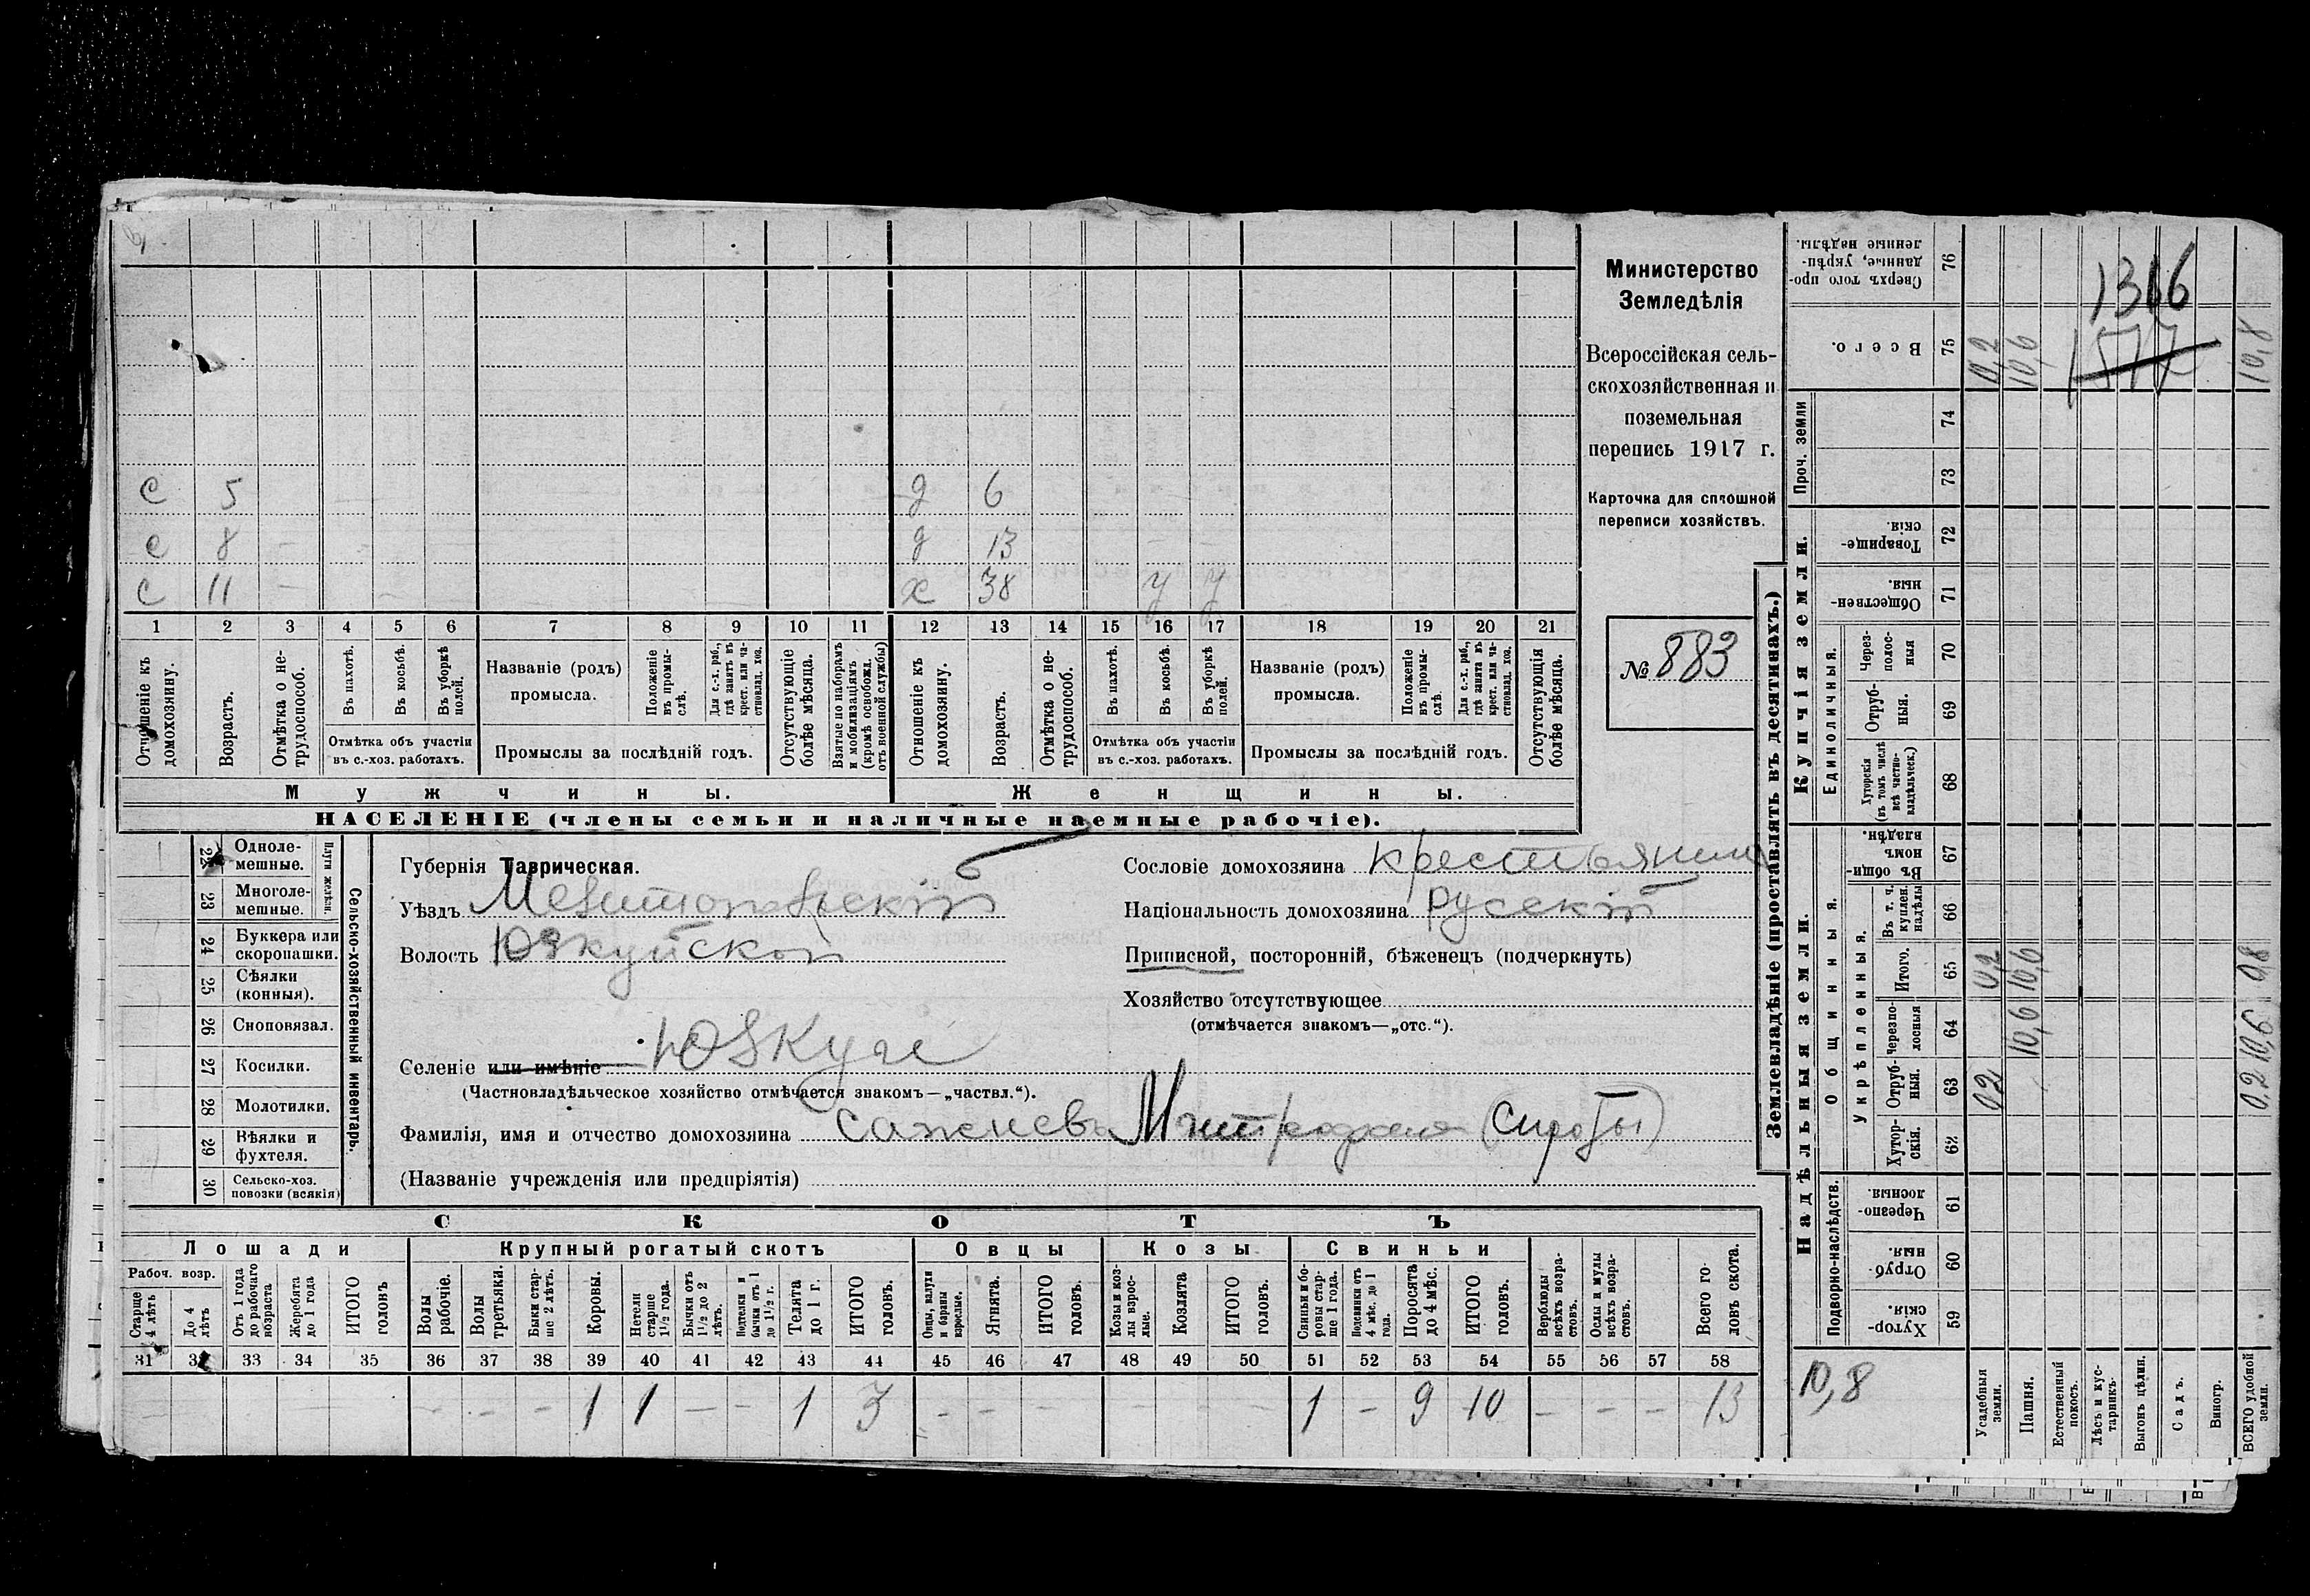 с 5 д 6
с 8 – д 13
с 11 – х 38 у у
1 2 3 4 5 6 7 8 9 10 11 12 13 14 15 16 17 18 19 20 21
Отношеніе къ домохозяину.
Возрастъ.
Отмѣтка о не-
трудоспособ.
Въ пахотѣ.
Въ косьбѣ.
Въ уборкѣ полей.
Отмѣтка объ участіи
въ с.-хоз. работахъ.
Названіе (родъ)
промысла.
Положеніе въ промы-
слѣ.
Для с.-х. раб.,
гдѣ занятъ въ
крест. или ча-
стновлад. хоз.
Промыслы за послѣдній годъ.
Отсутствующіе
болѣе мѣсяца.
Взятые по наборамъ
и мобилизаціямъ
(кромѣ освобожд.
отъ военной службы)
Отношеніе къ
домохозяину.
Возрастъ.
Отмѣтка о не-
трудоспособ.
Въ пахотѣ.
Въ косьбѣ.
Въ уборкѣ
полей.
Отмѣтка объ участіи
въ с.-хоз. работахъ.
Названіе (родъ)
промысла.
Положеніе
въ промы-
слѣ.
Для с.-х. раб.,
гдѣ занята въ
крест. или ча-
стновлад. хоз.
Промыслы за послѣдній годъ.
Отсутствующія
болѣе мѣсяца.
Мужчины.
Женщины.
НАСЕЛЕНІЕ (члены семьи и наличные наемные рабочіе).
Министерство
Земледѣлія
Всероссійская сель-
скохозяйственная и
поземельная
перепись 1917 г.
Карточка для сплошной
переписи хозяйствъ.
№ 883
22 Одноле-
мешные.
23 Многоле-
мешные.
Плуги желѣзн.
24 Буккера или
скоропашки.
25 Сѣялки
(конныя).
26 Сноповязал.
27 Косилки.
28 Молотилки.
29 Вѣялки и
фухтеля.
30 Сельско-хоз.
повозки (всякія)
Сельско-хозяйственный инвентарь.
Губернія Таврическая.
Уѣздъ Мелитопольскій
Волость Юзкуйской
Селеніе или имѣніе Юзкуи
(Частновладѣльческое хозяйство отмѣчается знакомъ—„частвл.“).
Фамилія, имя и отчество домохозяина Сажнева Митрофана (Сироты)
(Названіе учрежденія или предпріятія)
Сословіе домохозяина крестьянинъ
Національность домохозяина русскій
Приписной, посторонній, бѣженецъ (подчеркнуть)
Хозяйство отсутствующее
(отмѣчается знакомъ—„отс.“).
СКОТЪ
Лошади
Крупный рогатый скотъ
Овцы
Козы
Свиньи
Рабоч. возр.
Старше
4 лѣтъ
До 4
лѣтъ
Отъ 1 года
до рабочаго
возраста
Жеребята
до 1 года
ИТОГО
головъ
Волы
рабочіе.
Волы
третьяки.
Быки стар-
ше 2 лѣтъ.
Коровы.
Нетели
старше
1½ года.
Бычки отъ
1½ до 2
лѣтъ.
Подтелки и
бычки отъ 1
до 1½ г.
Телята
до 1 г.
ИТОГО
головъ.
Овцы, валухи
и бараны
взрослые.
Ягнята.
ИТОГО
головъ.
Козы и коз-
лы взрос-
лые.
Козлята
ИТОГО
головъ.
Свиньи и бо-
ровы стар-
ше 1 года.
Подсвинки отъ
4 мѣс. до 1
года.
Поросята
до 4 мѣс.
ИТОГО
головъ.
Верблюды
всѣхъ возра-
стовъ.
Ослы и мулы
всѣхъ возра-
стовъ.
Всего го-
ловъ скота.
31 32 33 34 35 36 37 38 39 40 41 42 43 44 45 46 47 48 49 50 51 52 53 54 55 56 57 58
– – – 1 1 – – 1 3 – – – – – – 1 – 9 10 – – – 13
Землевладѣніе (проставлять въ десятинахъ.)
Надѣльныя земли.
Купчія земли.
Подворно-наслѣдств.
Общинныя.
Укрѣпленныя.
Единоличныя.
Проч. земли
Сверхъ того про-
данные, укрѣп-
ленные надѣлы. 76
Всего. 75
74
73
Товарище-
скія. 72
Обществен-
ныя. 71
Через-
полос-
ныя 70
Отруб-
ныя. 69
Хуторскія
(въ томъ числѣ
всѣ частно-
владѣльческ.) 68
Въ общи-
номъ
владѣн. 67
Въ т. ч.
куплен.
надѣлы 66
Итого. 65
Черезпо-
лосныя 64
Отруб-
ныя. 63
Хутор-
скія. 62
Черезпо-
лосныя. 61
Отруб-
ныя. 60
Хутор-
скія. 59
1316
1577
0,2 10,6 10,8
0,2 10,6 0,8
10,6 10,6
0,2 0,2
10,8
Усадебныя
земли.
Пашня.
Естественный
покосъ.
Лѣсъ и кус-
тарникъ.
Выгонъ цѣлин.
Садъ.
Виногр.
ВСЕГО удобной
земли.